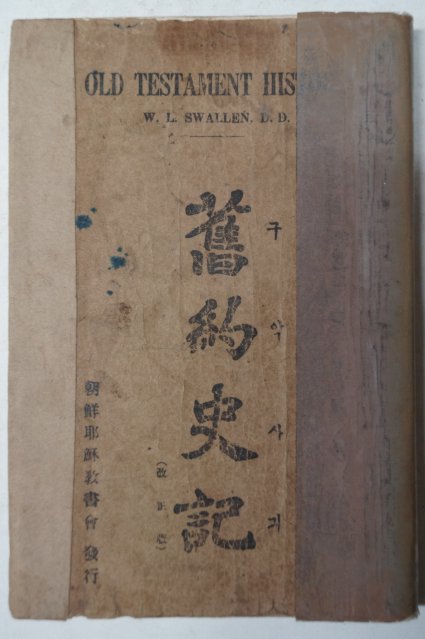 OLD TESTAMENT HIST
W. L. SWALLEN, D. D.
舊約史記
구약사긔
(改正版)
朝鮮耶穌敎書會 發行